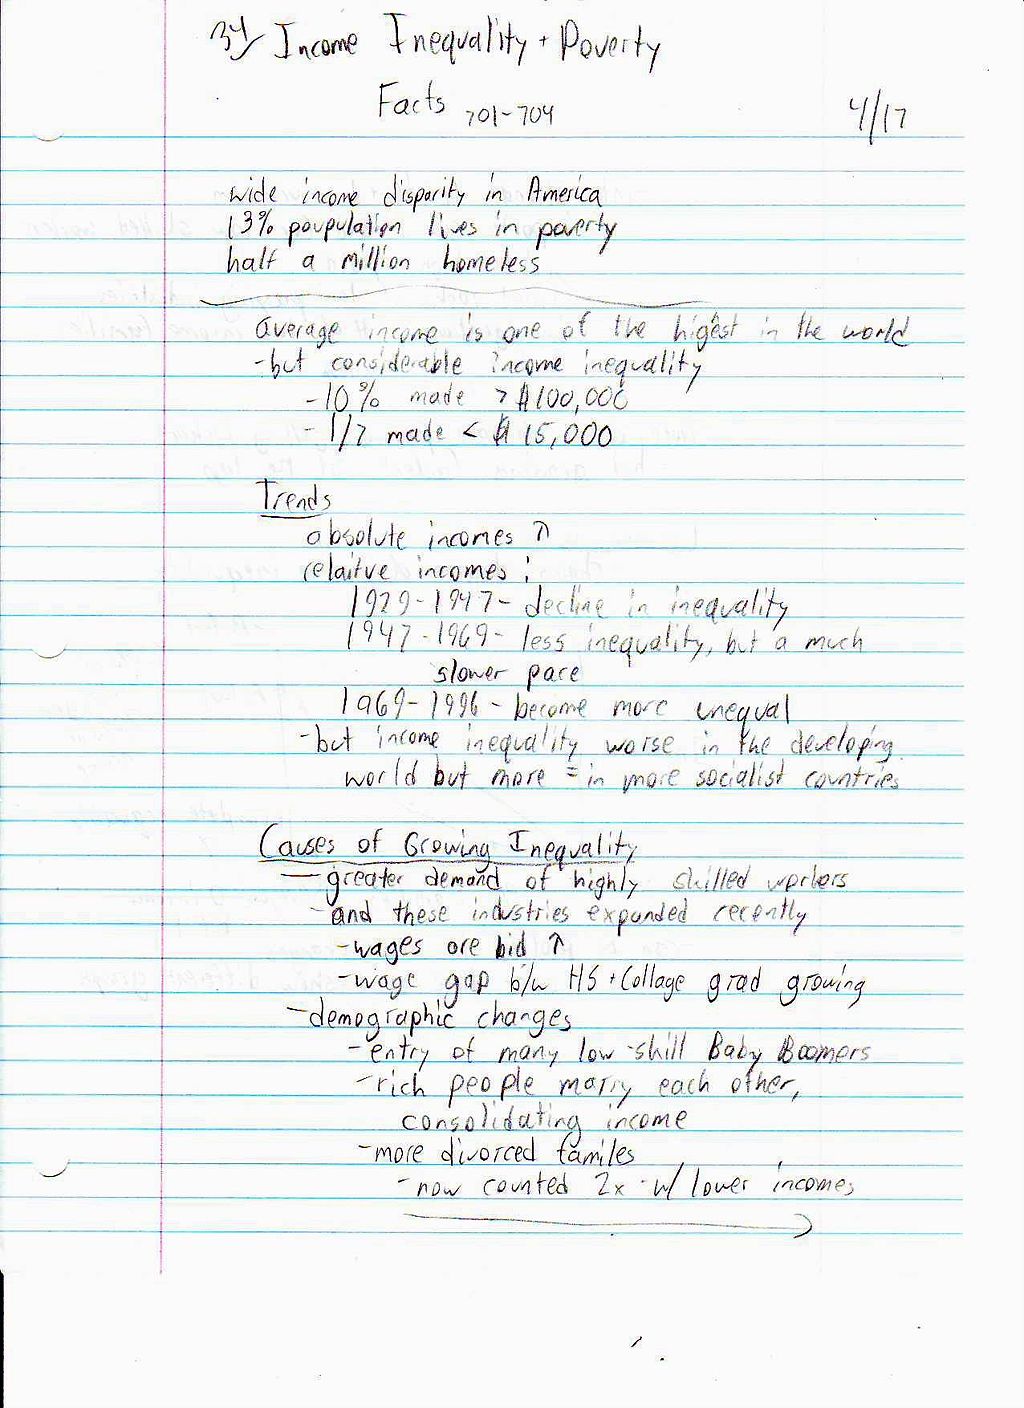 34) Income Inequality + Poverty
Facts 701-704
4/17
wide income disparity in America
13% poupulation lives in poverty
half a million homeless
average income is one of the higest in the world
-but considerable income inequality
-10% made > $100,000
-1/7 made < $15,000
Trends
absolute incomes ↑
relaitve incomes:
1929-1947- decline in inequality
1947-1969- less inequality, but a much
slower pace
1969-1996- become more unequal
-but income inequality worse in the developing
world but more = in more socialist countries
Causes of Growing Inequality
-greater demand of highly skilled workers
-and these industries expanded recently
-wages are bid ↑
-wage gap b/w HS + Collage grad growing
-demographic changes
-entry of many low-skill Baby Boomers
-rich people marry each other,
consolidating income
-more divorced familes
-now counted 2x w/ lower incomes